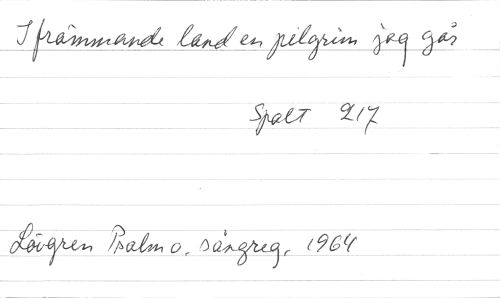 I främmande land en pilgrim jag går
Spalt 217
Lövgren Psalm o. sångreg. 1964